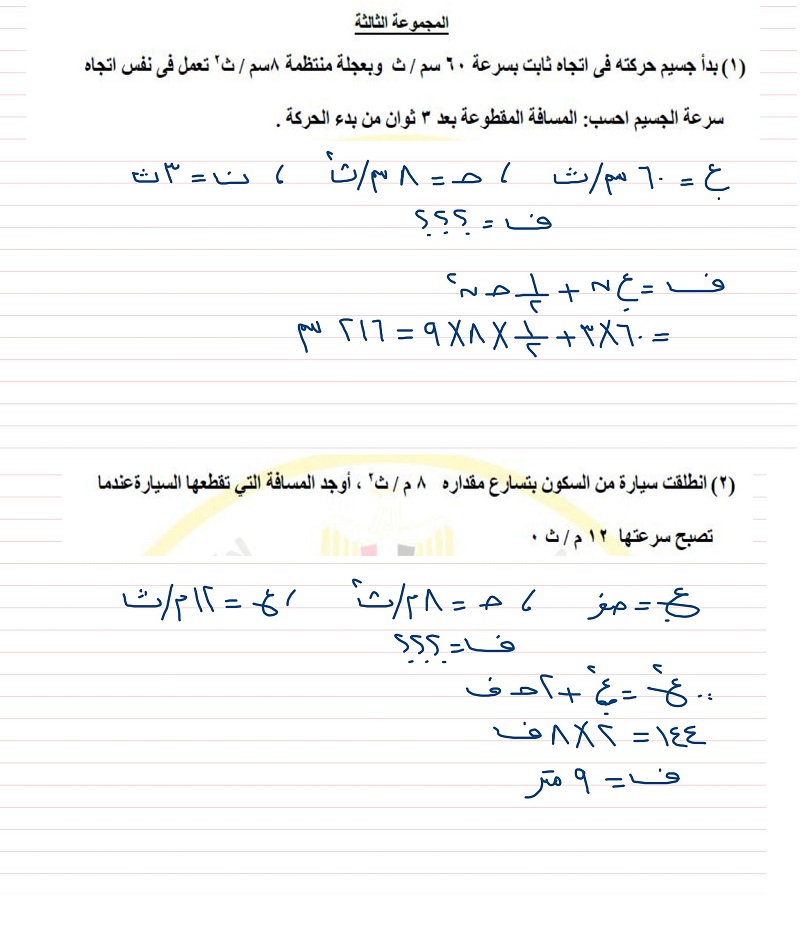 المجموعة الثالثة
(١) بدأ جسيم حركته فى اتجاه ثابت بسرعة ٦٠ سم / ث وبعجلة منتظمة ٨سم / ث٢ تعمل فى نفس اتجاه
سرعة الجسيم احسب: المسافة المقطوعة بعد ٣ ثوان من بدء الحركة .
ع. = ٦٠ سم/ث ، حـ = ٨ سم/ث٢ ، ن = ٣ ث
ف = ؟؟؟
ف = ع. ن + ١/٢ حـ ن٢
= ٦٠×٣ + ١/٢ ×٨×٩ = ٢١٦ سم
(٢) انطلقت سيارة من السكون بتسارع مقداره ٨ م / ث٢ ، أوجد المسافة التي تقطعها السيارة عندما
تصبح سرعتها ١٢ م / ث ٠
ع. = صفر ، حـ = ٨ م/ث٢ ، ع = ١٢ م/ث
ف = ؟؟؟
∵ ع٢ = ع.٢ + ٢ حـ ف
١٤٤ = ٢×٨ ف
ف = ٩ متر